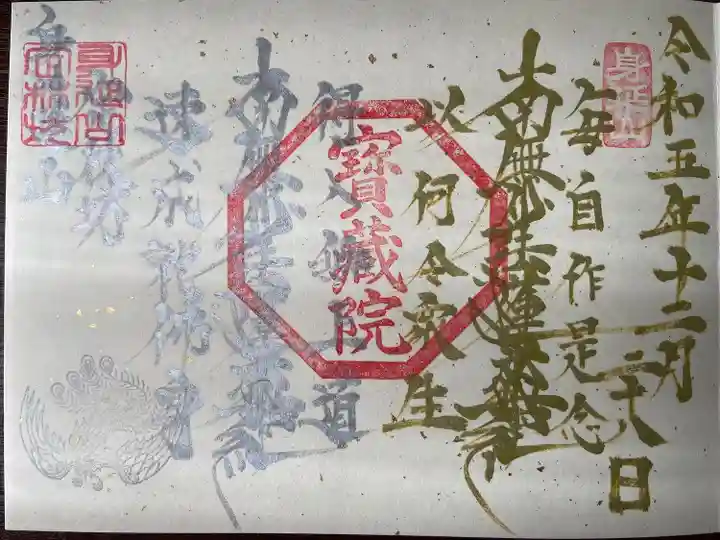 令和五年十二月二十八日
身延山
毎自作是念
南無妙法蓮華経
以何令衆生
寶藏院
得入無上道
南無妙法蓮華経
速成就佛身
身延山